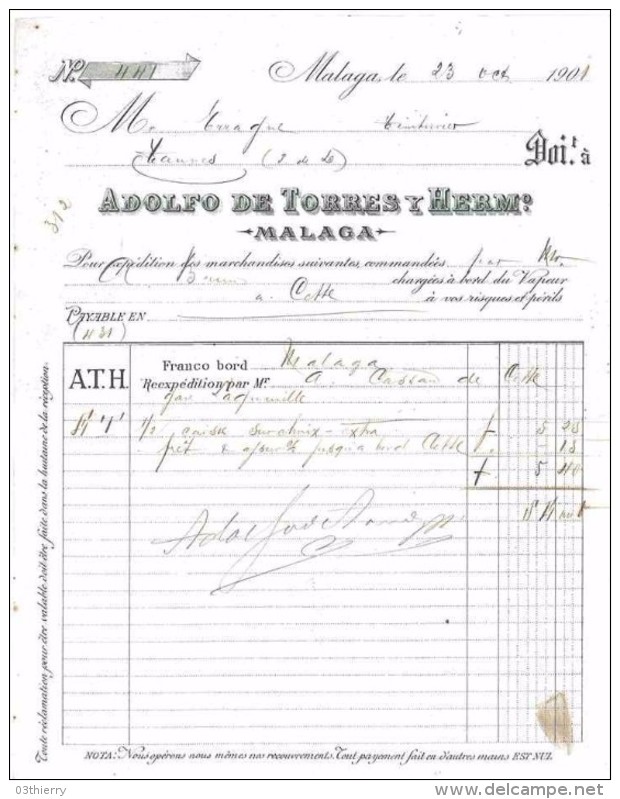 No. 441
Malaga, le 23 oct 1901
M.
Doi.t à
ADOLFO DE TORRES Y HERMO.
MALAGA
Pour expédition des marchandises suivantes, commandées par Mr.
chargées à bord du Vapeur
a Cette à vos risques et périls
PAYABLE EN
(431)
312
A.T.H.
Franco bord Malaga
Reexpédition par Mr. A. Cassan de Cette
1/2 caisse surchoix - extra f 5 25
frêt & jusqu'a bord Cette f. - 15
f 5 40
Toute réclamation pour être valable doit être faite dans la huitaine de la réception.
NOTA: Nous opérons nous mêmes nos recouvrements. Tout payement fait en d'autres mains EST NUL
03thierry
www.delcampe.net